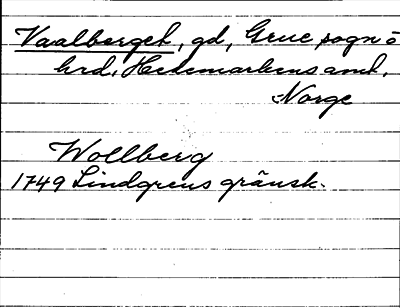 Vaalberget, gd, Grue sogn o
hrd, Hedemarkens amt,
Norge
Wollberg
1749 Lindgrens gränsk.